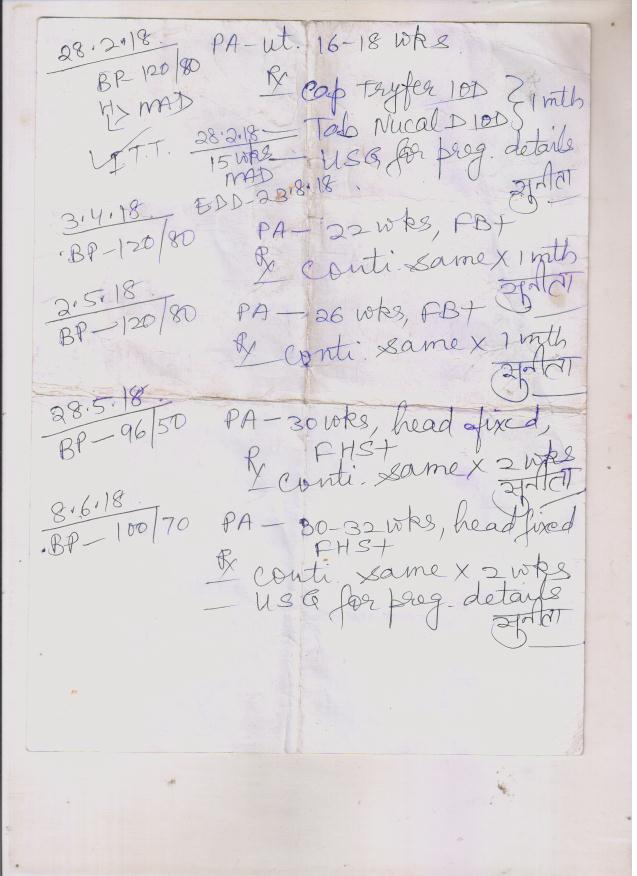 28.2.18. PA-ut. 16-18 wks.
BP 120/80 Rx
MAD Cap Tryfer 1OD } 1 mth
I T.T. 28.2.18 — Tab Nucal D 1OD
15 wks — USG for preg. details
MAD
EDD-23.8.18. सुनीता
3.4.18. PA- 22 wks, FB+
BP-120/80 Rx conti. same x 1 mth
सुनीता
2.5.18 PA — 26 wks, FB+
BP-120/80 Rx conti. same x 1 mth
सुनीता
28.5.18 PA-30 wks, head fixed,
BP-96/50 Rx FHS+
— conti. same x 2 wks
सुनीता
8.6.18. PA- 30-32 wks, head fixed
BP-100/70 FHS+
Rx conti. same x 2 wks
— USG for preg. details
सुनीता